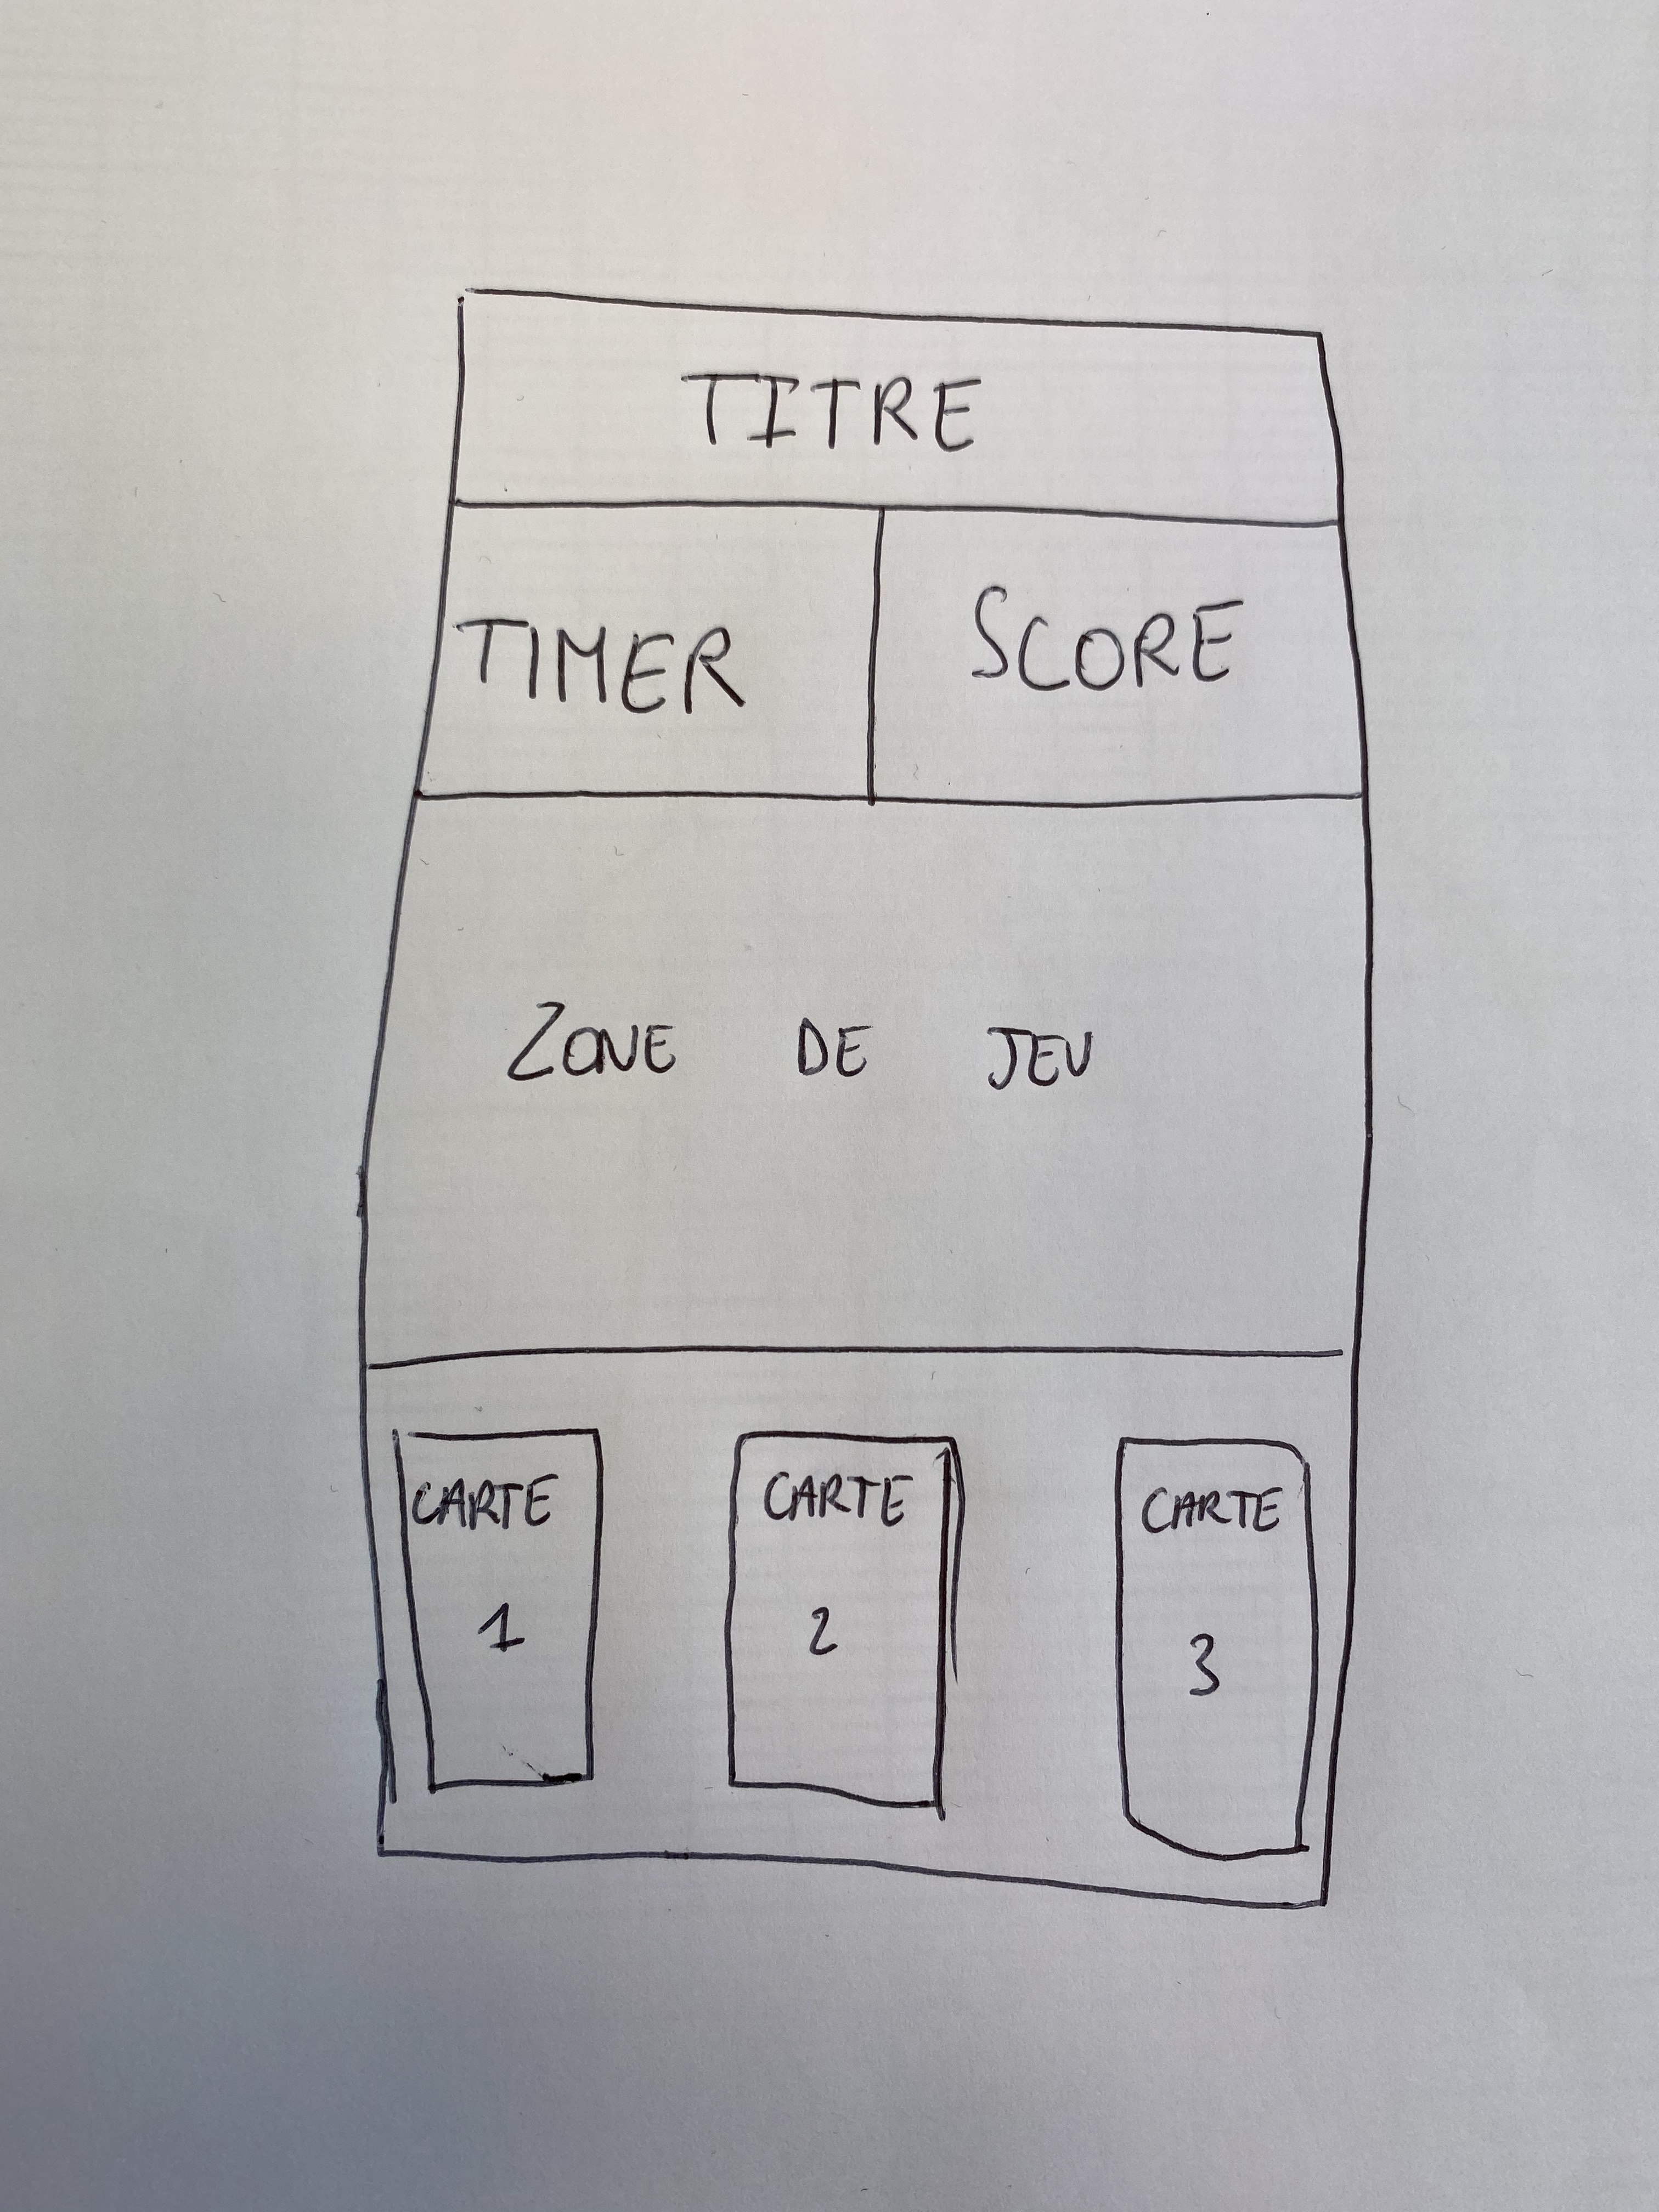 TITRE
TIMER
SCORE
ZONE DE JEU
CARTE
1
CARTE
2
CARTE
3